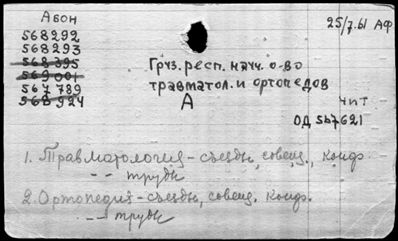 Абон
568292
568293
568395
569001
567789
568924
25/7.61 АФ
Груз. респ. научн. о-во
травматол. и ортопедов
А
чит
ОД 567621
1. Травматология - съезды, совещ., конф.
-"- труды
2. Ортопедия - съезды, совещ. конф.
-"- труды